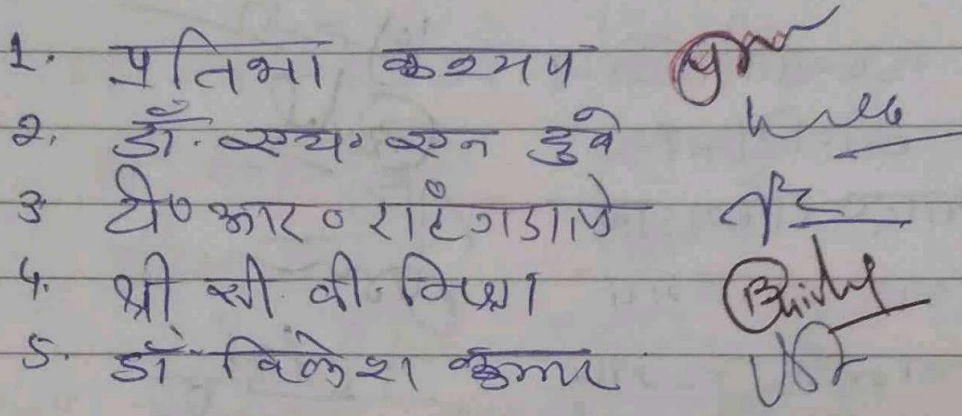 1. प्रतिभा कश्यप
2. डॉ. एच. एन दुबे
3 टी० आर० राहंगडाले
4. श्री सी. वी. मिश्रा
5. डॉ. विकेश कुमार